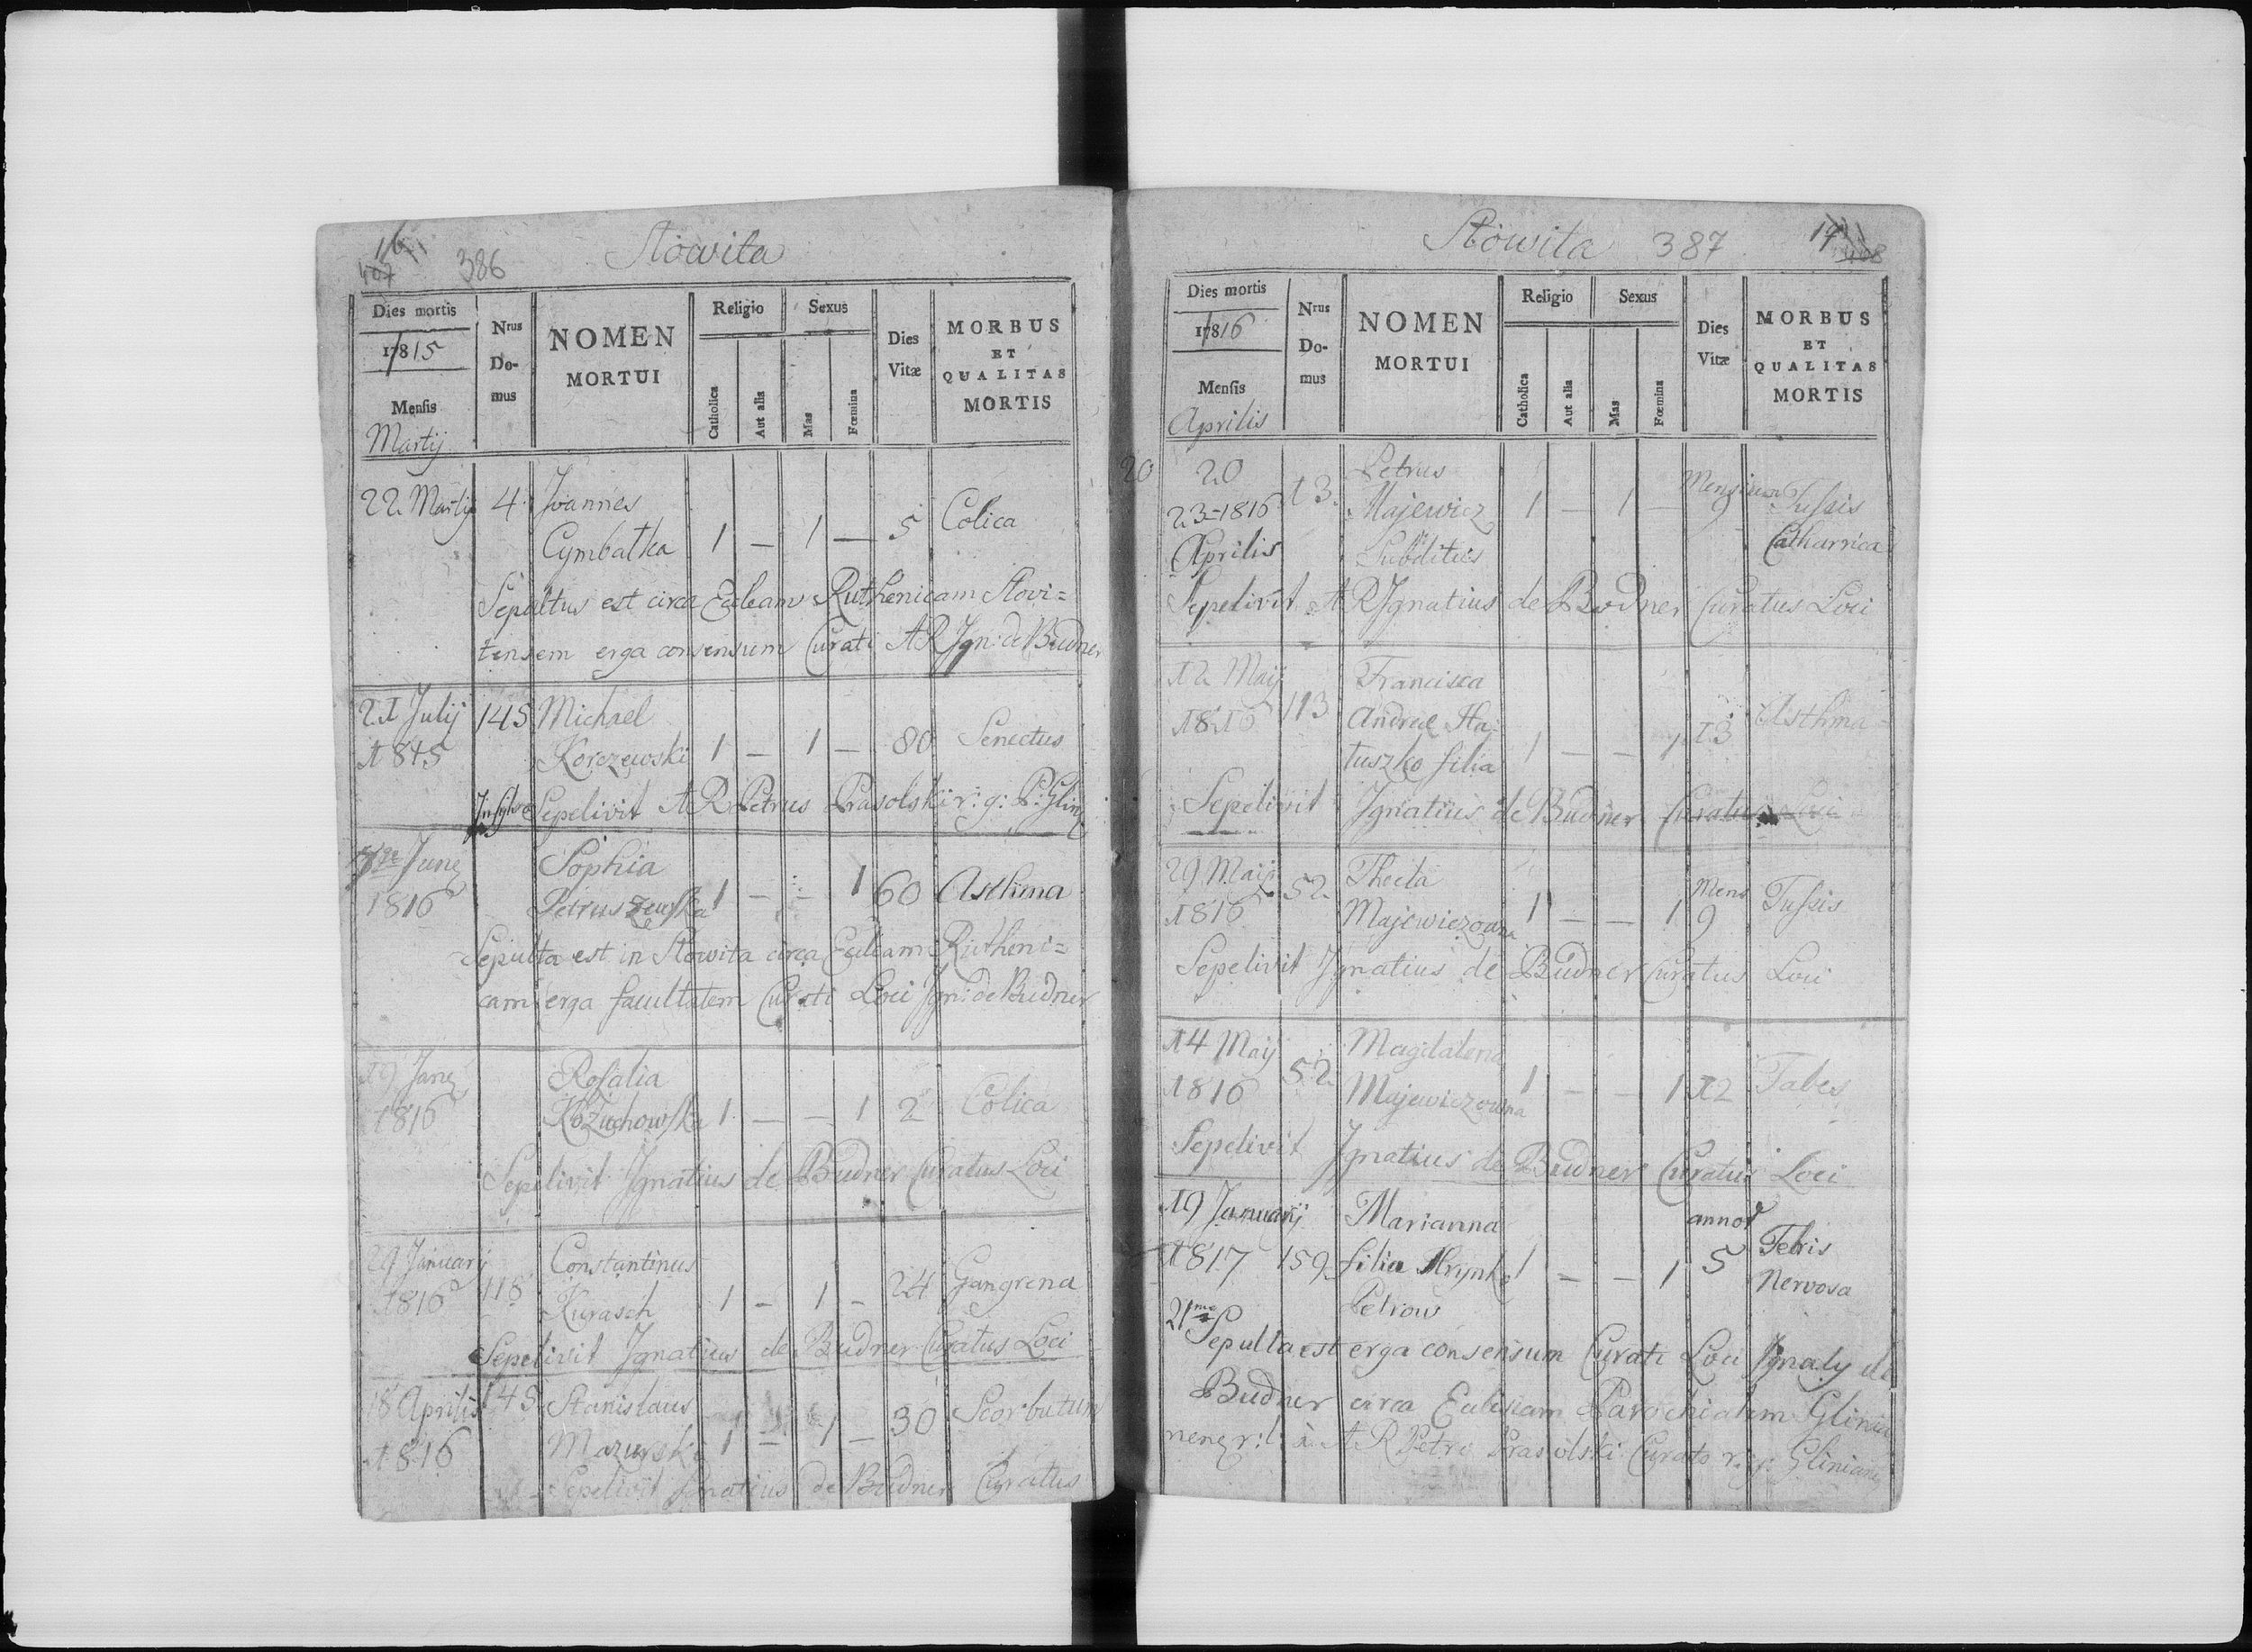 16
407 386 Słowita
Dies mortis
17815
Mensis
Martij
Nrus
Do-
mus
NOMEN
MORTUI
Religio
Catholica
Aut alia
Sexus
Mas
Fœmina
Dies
Vitæ
MORBUS
ET
QUALITAS
MORTIS
22 Martij 4. Joannes
Cymbałka 1 — 1 — 5 Colica
Sepultus est circa Ecleam Ruthenicam Slovi=
tensem erga consensum Curati AR Ign: de Budner
21 Julij 145 Michael
1815 Korczewski 1 — 1 — 80 Senectus
Sepelivit A R Petrus Prasolski r: g: P: Glin
June Sophia
1816 Petruszewska 1 — — 1 60 Asthma
Sepulta est in Słowita circa Ecleiam Rutheni=
cam erga facultatem Curati Loci Ign: de Budner
19 Rosalia
1816 Kozuchowska 1 — — 1 2 Colica
Sepelivit Ignatius de Budner Curatus Loci
29 Januarij Constantinus
1816 118 Kurasch 1 — 1 — 24 Gangrena
Sepelivit Ignatius de Budner Curatus Loci
18 Aprilis 145 Stanislaus
1816 Mazurski 1 — 1 — 30 Scorbutum
Sepelivit Ignatius de Budner Curatus
Słowita 387
Dies mortis
17816
Mensis
Aprilis
Nrus
Do-
mus
NOMEN
MORTUI
Religio
Catholica
Aut alia
Sexus
Mas
Fœmina
Dies
Vitæ
MORBUS
ET
QUALITAS
MORTIS
20 20 13. Petrus
23-1816 Majewicz 1 — 1 — 9 Tussis
Aprilis Subditus Catharrica
Sepelivit A R Ignatius de Budner Curatus Loci
12 Maij Francisca
1816 113 Andreæ Ha-
tuszko filia 1 — — 1 13 Asthma
Sepelivit Ignatius de Budner Curatus Loci
29 Maij 52 Thecla Mens
1816 Majewiczowna 1 — — 1 9 Tussis
Sepelivit Ignatius de Budner Curatus Loci
14 Maij 52 Magdalena
1816 Majewiczowna 1 — — 1 12 Tabes
Sepelivit Ignatius de Budner Curatus Loci
19 Januarij Marianna
1817 159 filia Hrynko 1 — — 1 5 Febris
Petrow Nervosa
21me
Sepulta est erga consensum Curati Loci Ignatij de
Budner circa Parochialem
A R Petro Prasolski Curato